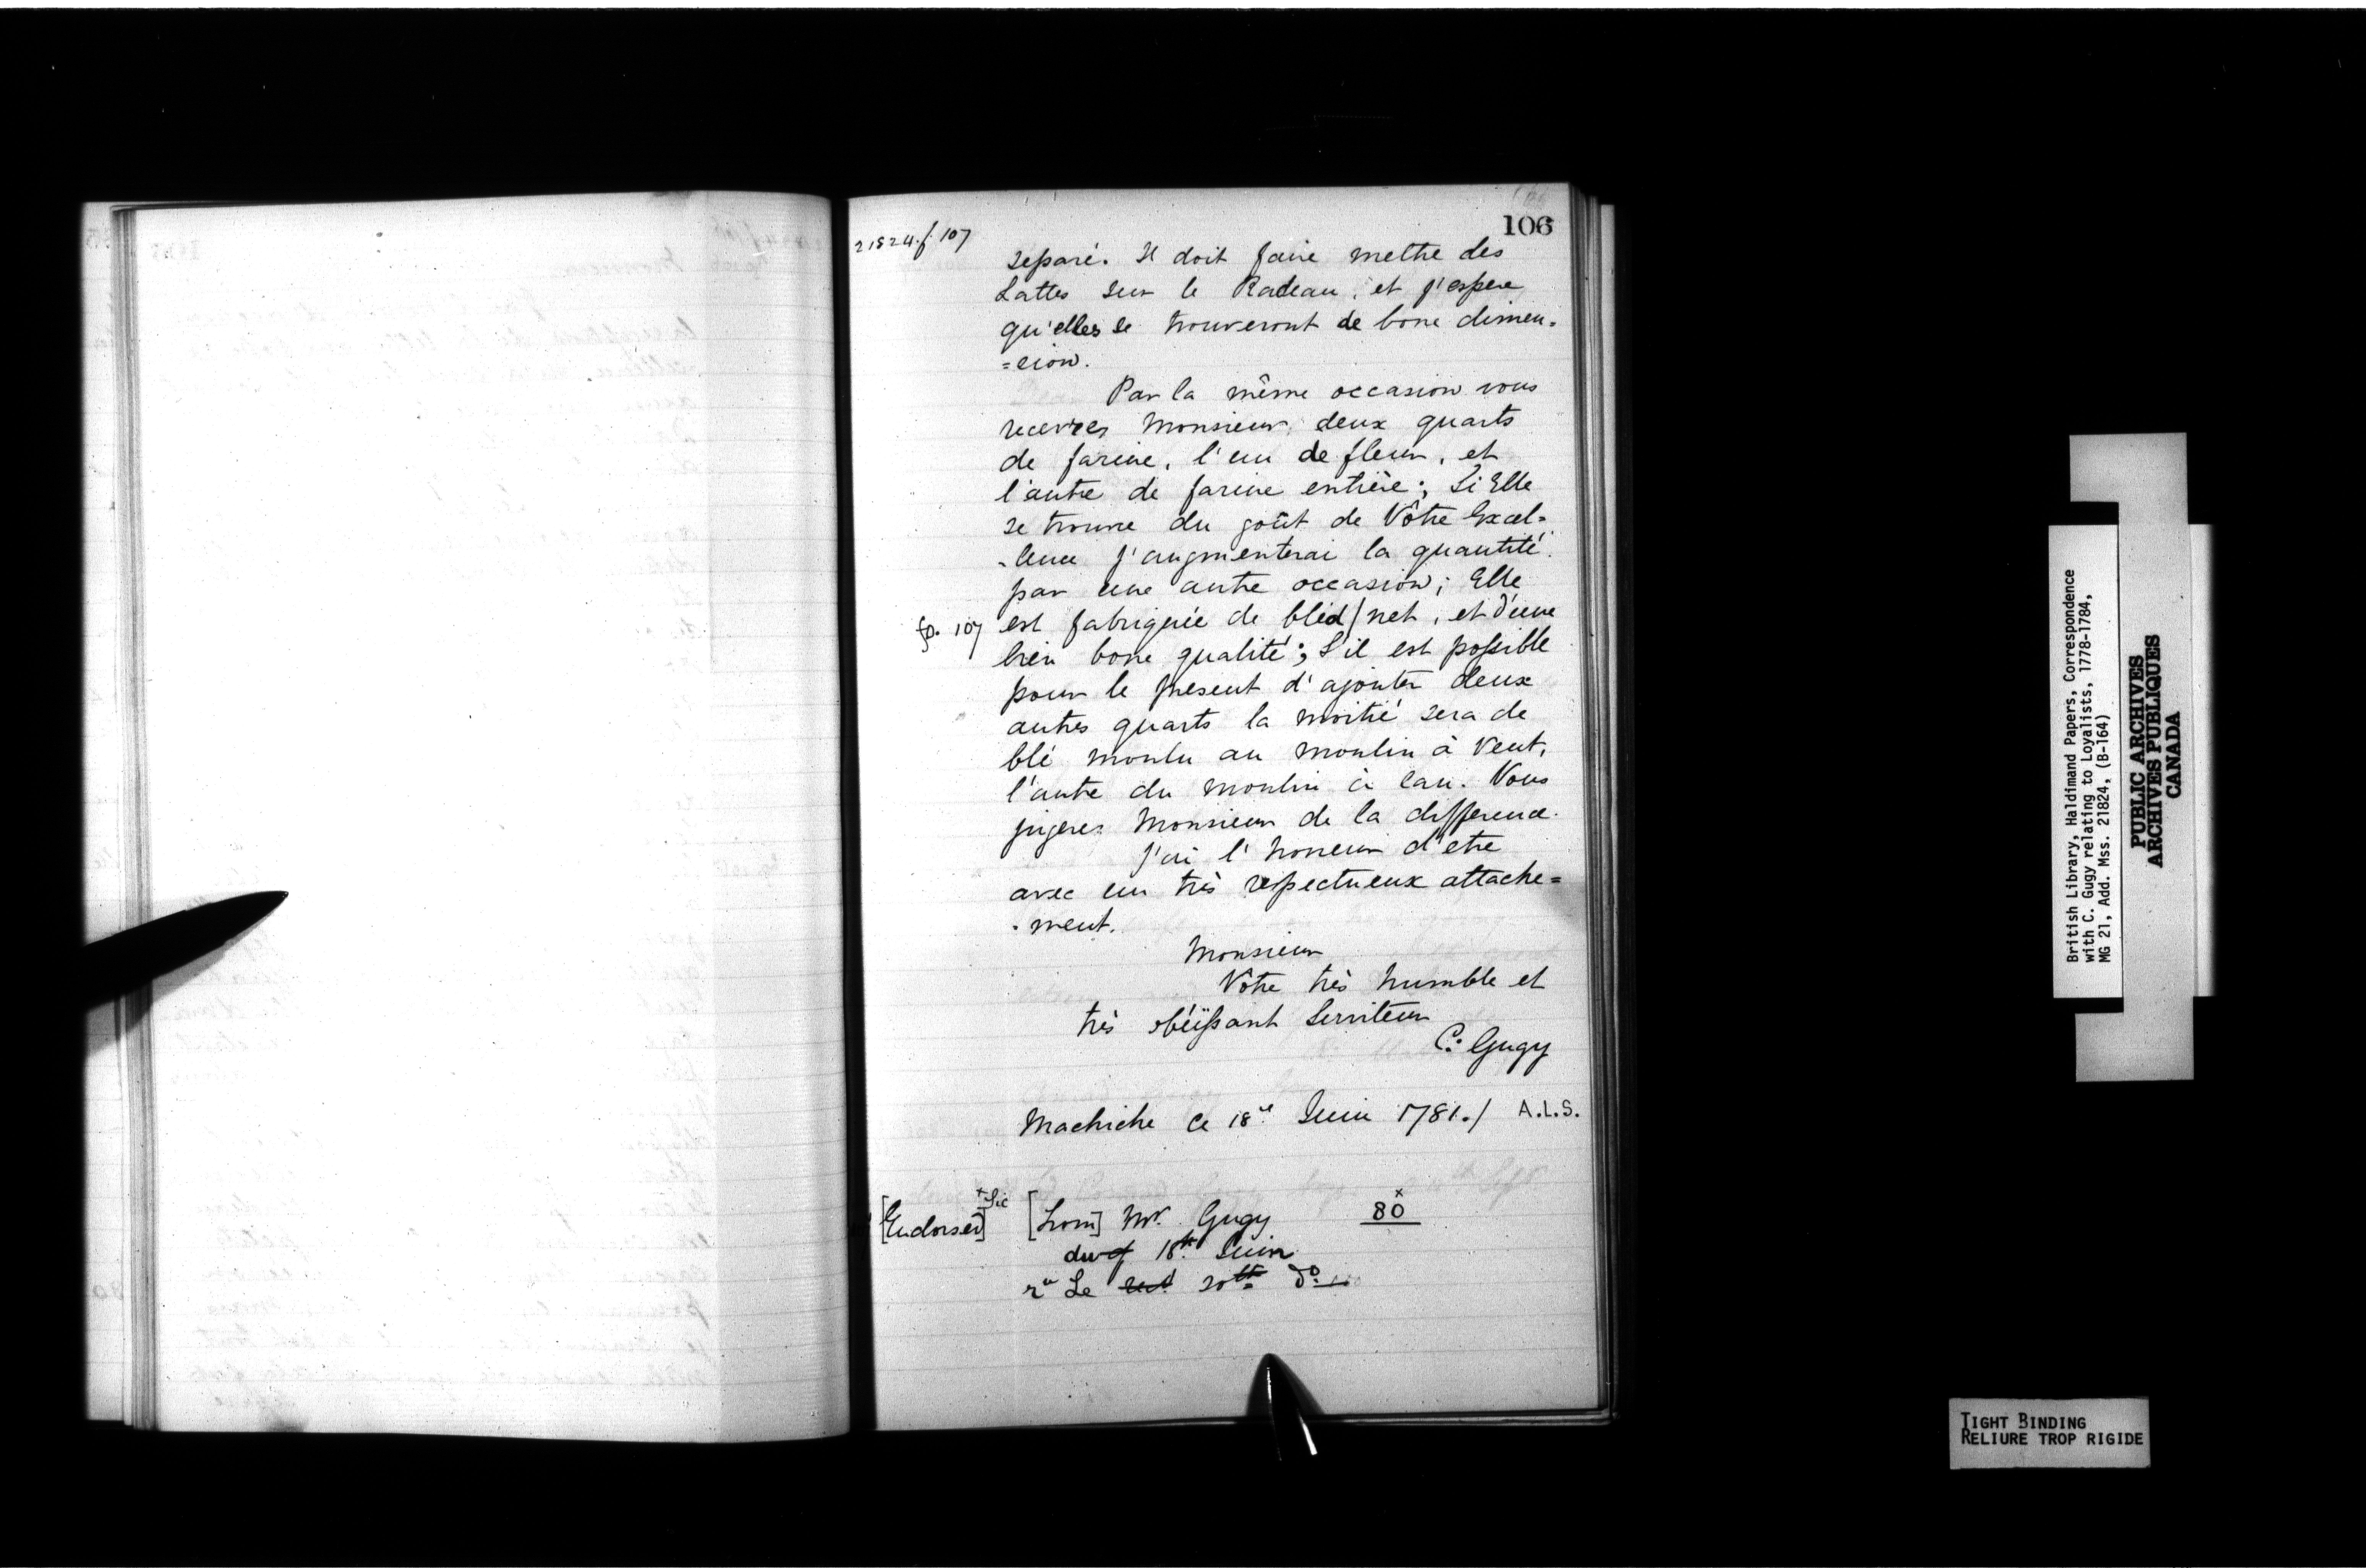 106
21824.f.107
separé. Il doit faire mettre des
Lattes sur le Radeau, et j'espere
qu'elles se trouveront de bone dimen=
=cion.
Par la même occasion vous
recevres Monsieur, deux quarts
de farine, l'un de fleur, et
l'autre de farine entière; Si Elle
se trouve du goût de Vôtre Excel=
-lence j'augmenterai la quantité
par une autre occasion; Elle
fo. 107 est fabriquée de bléd/net, et d'une
bien bone qualité; S'il est possible
pour le present d'ajouter deux
autres quarts la moitié sera de
blé moulu au moulin à Vent,
l'autre du moulin à eau. Vous
jugerez Monsieur de la difference.
J'ai l'honneur d'etre
avec un très respectueux attache=
-ment.
Monsieur
Votre très humble et
très obéïssant Serviteur
C: Gugy
Machiche ce 18e Juin 1781./ A.L.S.
[Endorsed] +Sic [from] Mr. Gugy 80+
du of 18th Juin
ru Le recd 20th do
British Library, Haldimand Papers, Correspondence
with C. Gugy relating to Loyalists, 1778-1784,
MG 21, Add. Mss. 21824, (B-164)
PUBLIC ARCHIVES
ARCHIVES PUBLIQUES
CANADA
TIGHT BINDING
RELIURE TROP RIGIDE